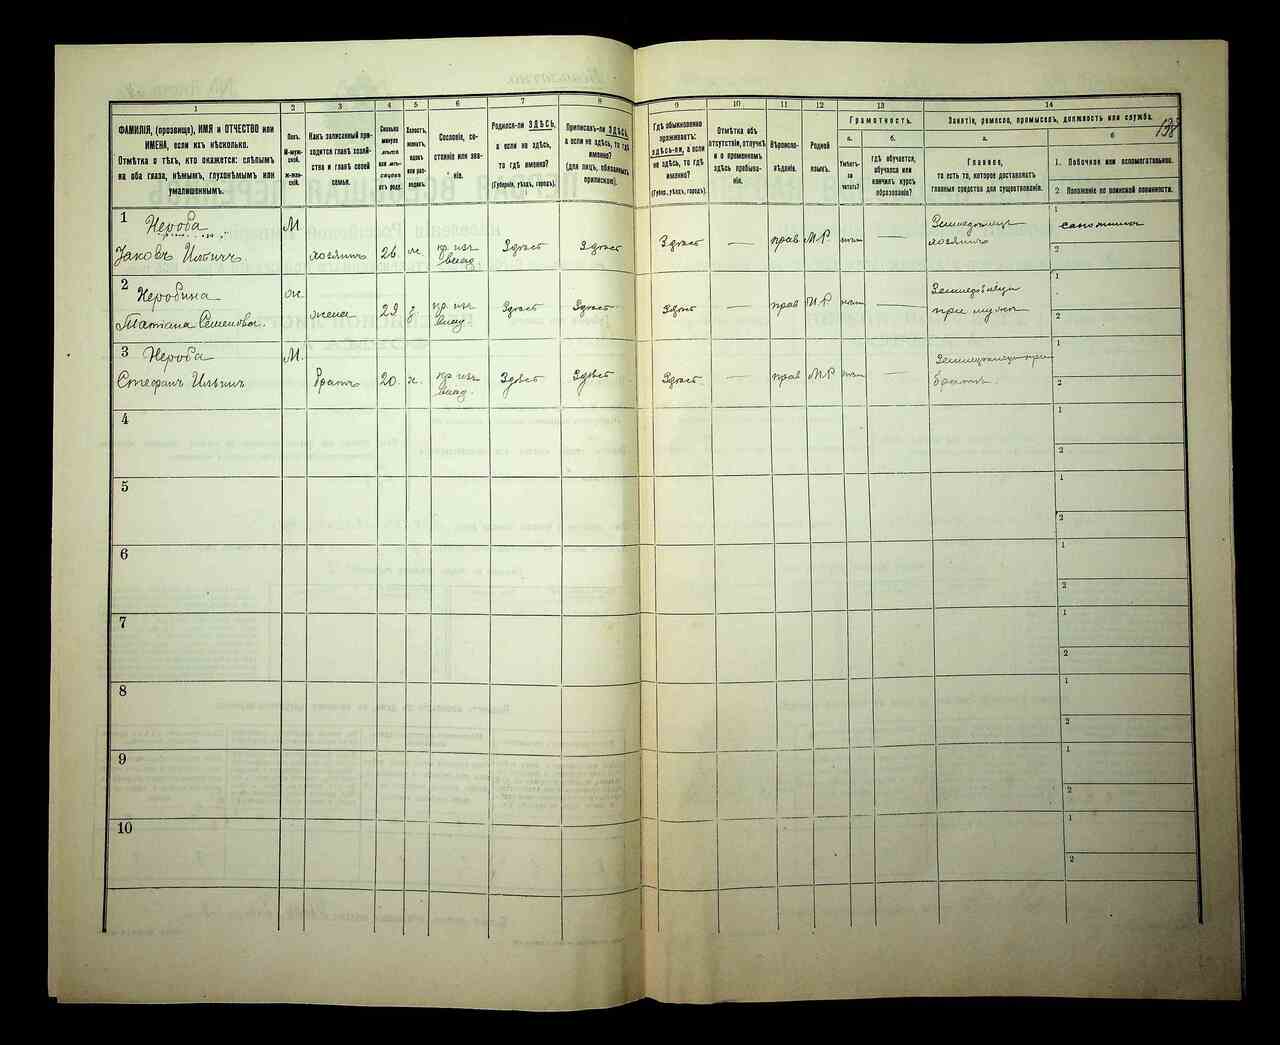 138
1
2
3
4
5
6
7
8
9
10
11
12
13
14
ФАМИЛІЯ, (прозвище), ИМЯ и ОТЧЕСТВО или
ИМЕНА, если ихъ нѣсколько.
Отмѣтка о тѣхъ, кто окажется: слѣпымъ
на оба глаза, нѣмымъ, глухонѣмымъ или
умалишеннымъ.
Полъ.
М-муж-
ской.
Ж-жен-
скій.
Какъ записанный при-
ходится главѣ хозяй-
ства и главѣ своей
семьи.
Сколько
минуло
лѣтъ
отъ роду.
Холостъ,
женатъ,
вдовъ
или раз-
веденъ.
Сословіе, со-
стояніе или зва-
ніе.
Родился-ли ЗДѢСЬ,
а если не здѣсь,
то гдѣ именно?
(Губернія, уѣздъ, городъ).
Приписанъ-ли ЗДѢСЬ,
а если не здѣсь, то гдѣ
именно?
(для лицъ, обязанныхъ
припискою).
Гдѣ обыкновенно
проживаетъ:
здѣсь-ли, а если
не здѣсь, то гдѣ
именно?
(Губерн., уѣздъ, городъ).
Отмѣтка объ
отсутствіи, отлучкѣ
и о временномъ
здѣсь пребыва-
ніи.
Вѣроиспо-
вѣданіе.
Родной
языкъ.
Грамотность.
а.
Умѣетъ-
ли
читать?
б.
гдѣ обучается,
обучался или
кончилъ курсъ
образованія?
Занятіе, ремесло, промыселъ, должность или служба.
а.
Главное,
то есть то, которое доставляетъ
главныя средства для существованія.
б
1. Побочное или вспомогательное.
2 Положеніе по воинской повинности.
1 Нероба М
Яковъ Ильичъ хозяинъ 26 ж. кр. изъ Здѣсь Здѣсь Здѣсь — прав М.Р. Земледѣлецъ хозяинъ
1
2
2 Неробина ж.
Татіана Семеновна. жена 22 з кр. изъ Здѣсь Здѣсь Здѣсь — прав М.Р. — при мужѣ
1
2
3 Нероба М.
Стефанъ Ильинъ братъ 20. х. кр изъ Здѣсь Здѣсь Здѣсь — прав М.Р — при братѣ.
1
2
4
1
2
5
1
2
6
1
2
7
1
2
8
1
2
9
1
2
10
1
2